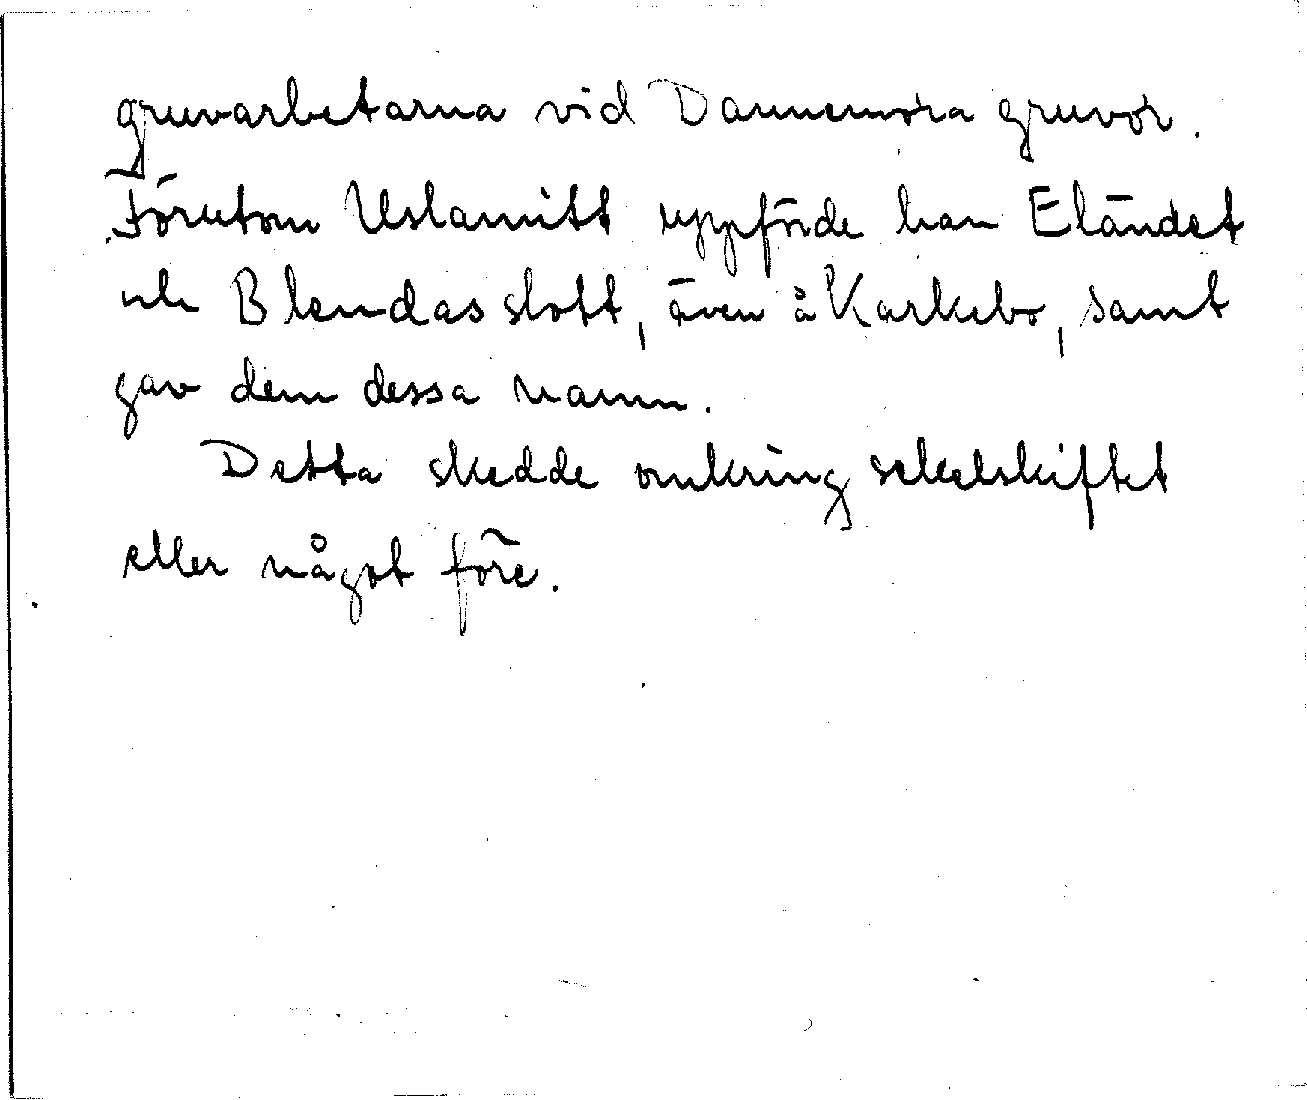 gruvarbetarna vid Dannemora gruvor.
Förutom Uslamitt uppförde han Eländet
och Blendas slott, även å Karkebo, samt
gav dem dessa namn.
Detta skedde omkring sekelskiftet
eller något före.